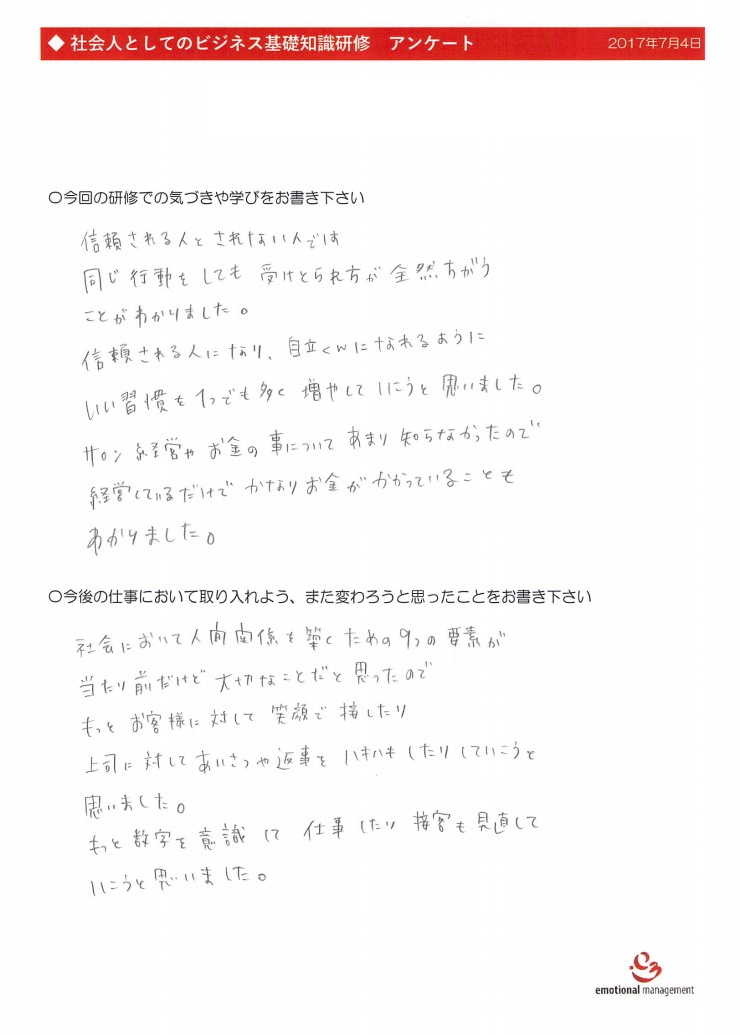 ◆ 社会人としてのビジネス基礎知識研修 アンケート 2017年7月4日
〇今回の研修での気づきや学びをお書き下さい
信頼される人とされない人では
同じ行動をしても 受けとられ方が 全然ちがう
ことがわかりました。
信頼される人になり、自立くんになれるように
いい習慣を1つでも多く 増やしていこうと思いました。
サロン経営やお金の事について あまり知らなかったので
経営しているだけで かなりお金がかかっていることも
わかりました。
〇今後の仕事において取り入れよう、また変わろうと思ったことをお書き下さい
社会において人間関係を築くための9つの要素が
当たり前だけど 大切なことだと思ったので
もっと お客様に対して 笑顔で 接したり
上司に対してあいさつや返事を ハキハキしたりしていこうと
思いました。
もっと数字を意識して 仕事したり 接客も見直して
いこうと思いました。
emotional management